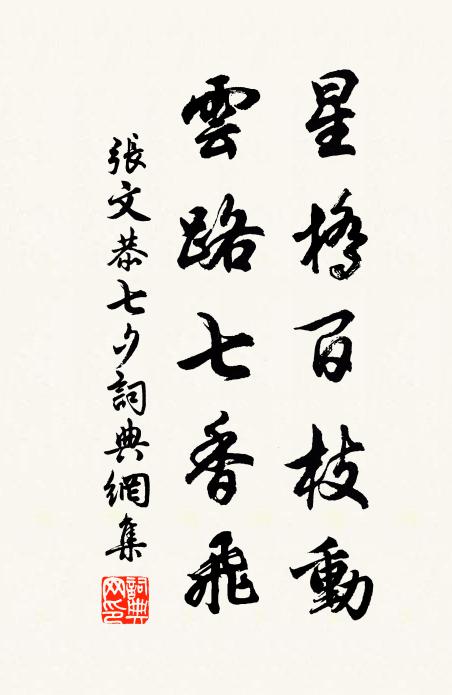 星橋百枝動
雲路七香飛
張文恭七夕詞典網集
詞典网印